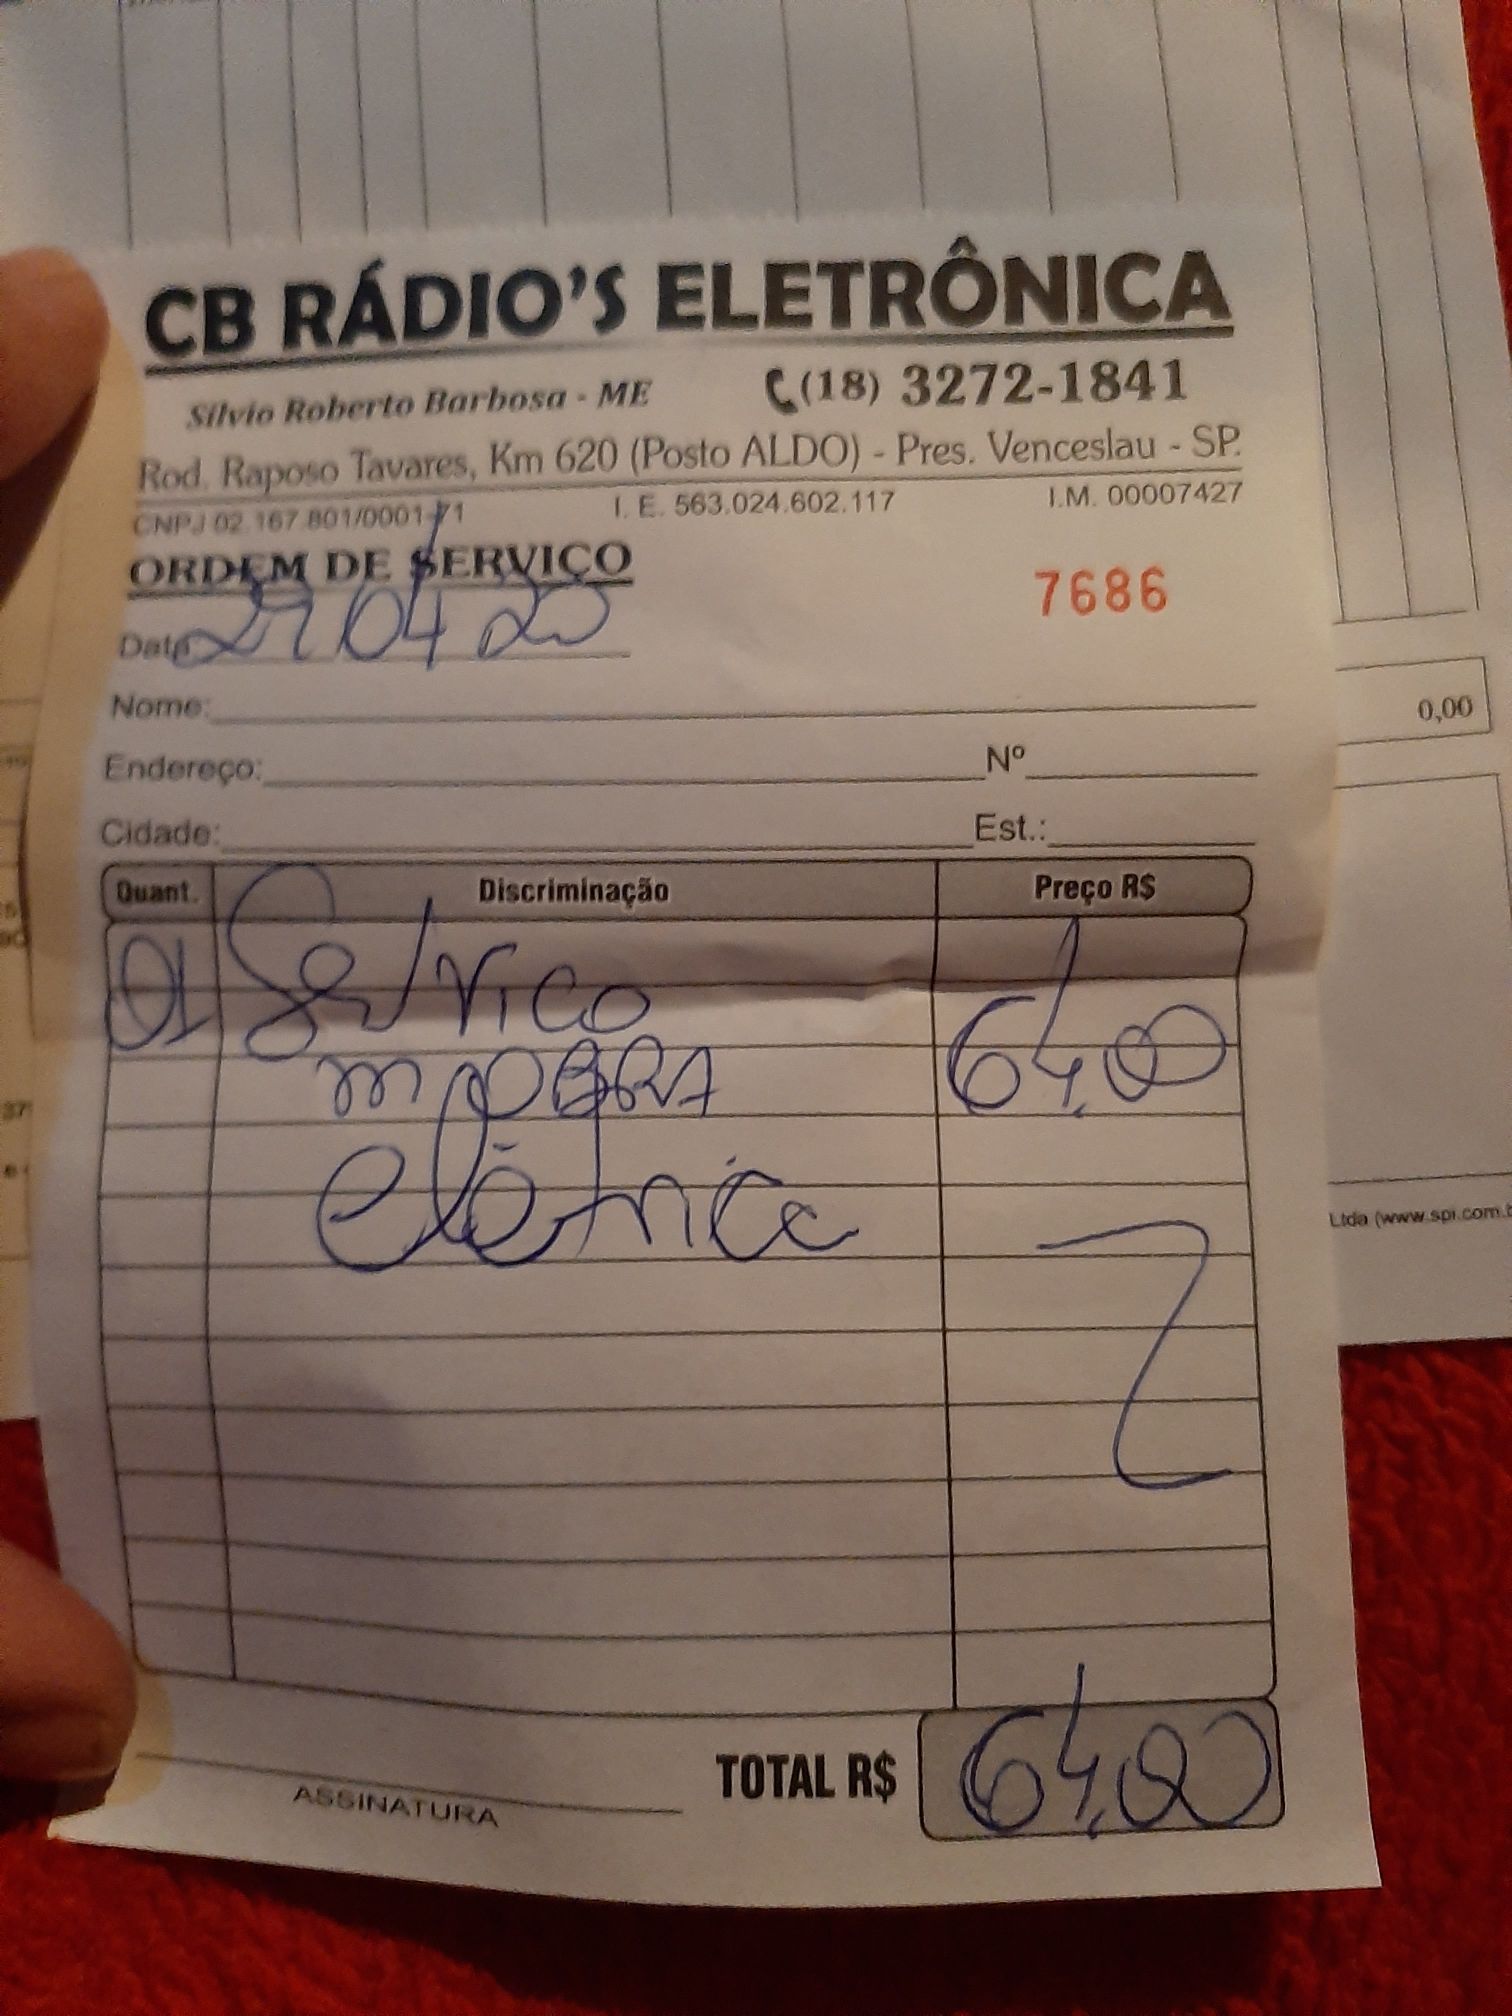 CB RÁDIO'S ELETRÔNICA
Silvio Roberto Barbosa - ME (18) 3272-1841
Rod. Raposo Tavares, Km 620 (Posto ALDO) - Pres. Venceslau - SP.
CNPJ 02.167.801/0001-71 I. E. 563.024.602.117 I.M. 00007427
ORDEM DE SERVIÇO
7686
Data 27 04 20
Nome:
0,00
Endereço: Nº
Cidade: Est.:
Quant. Discriminação Preço R$
01 Serviço 64,00
m OBRA
elétrica
Ltda (www.spi.com.b
TOTAL R$ 64,00
ASSINATURA